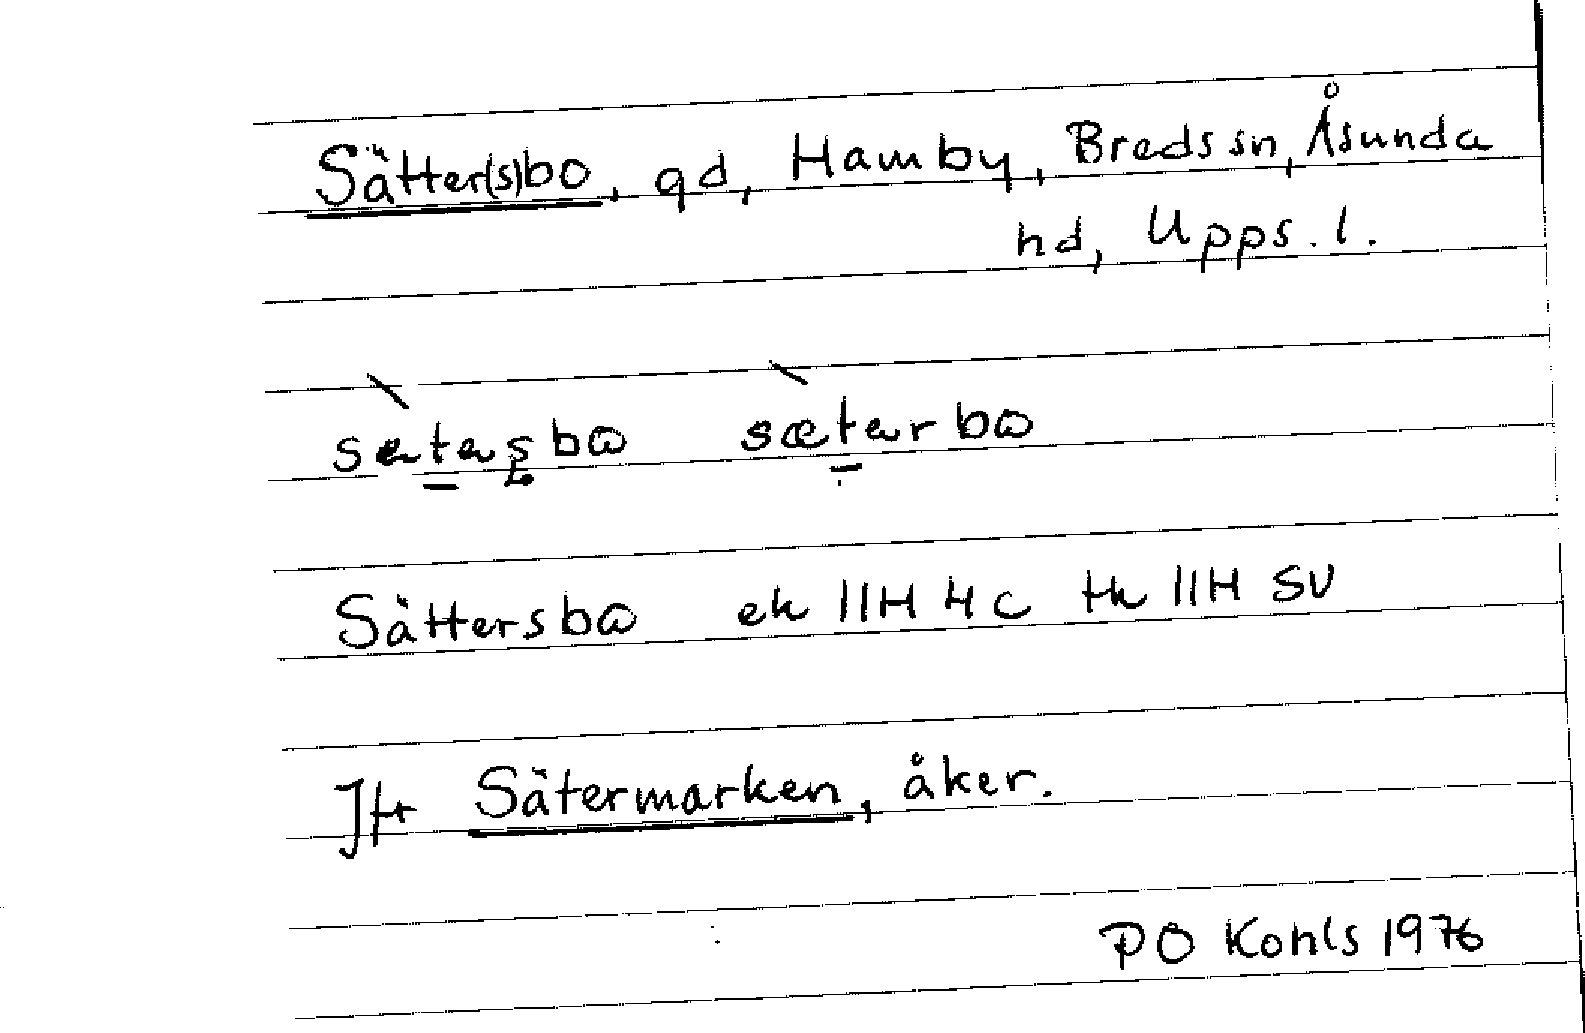 Sätter(s)bo, gd, Hamby, Breds sn, Åsunda
hd, Upps. l.
sætæʂbɷ sætærbɷ
Sättersbo ek 11H 4c tk 11H SV
Jfr Sätermarken, åker.
PO Kohls 1976